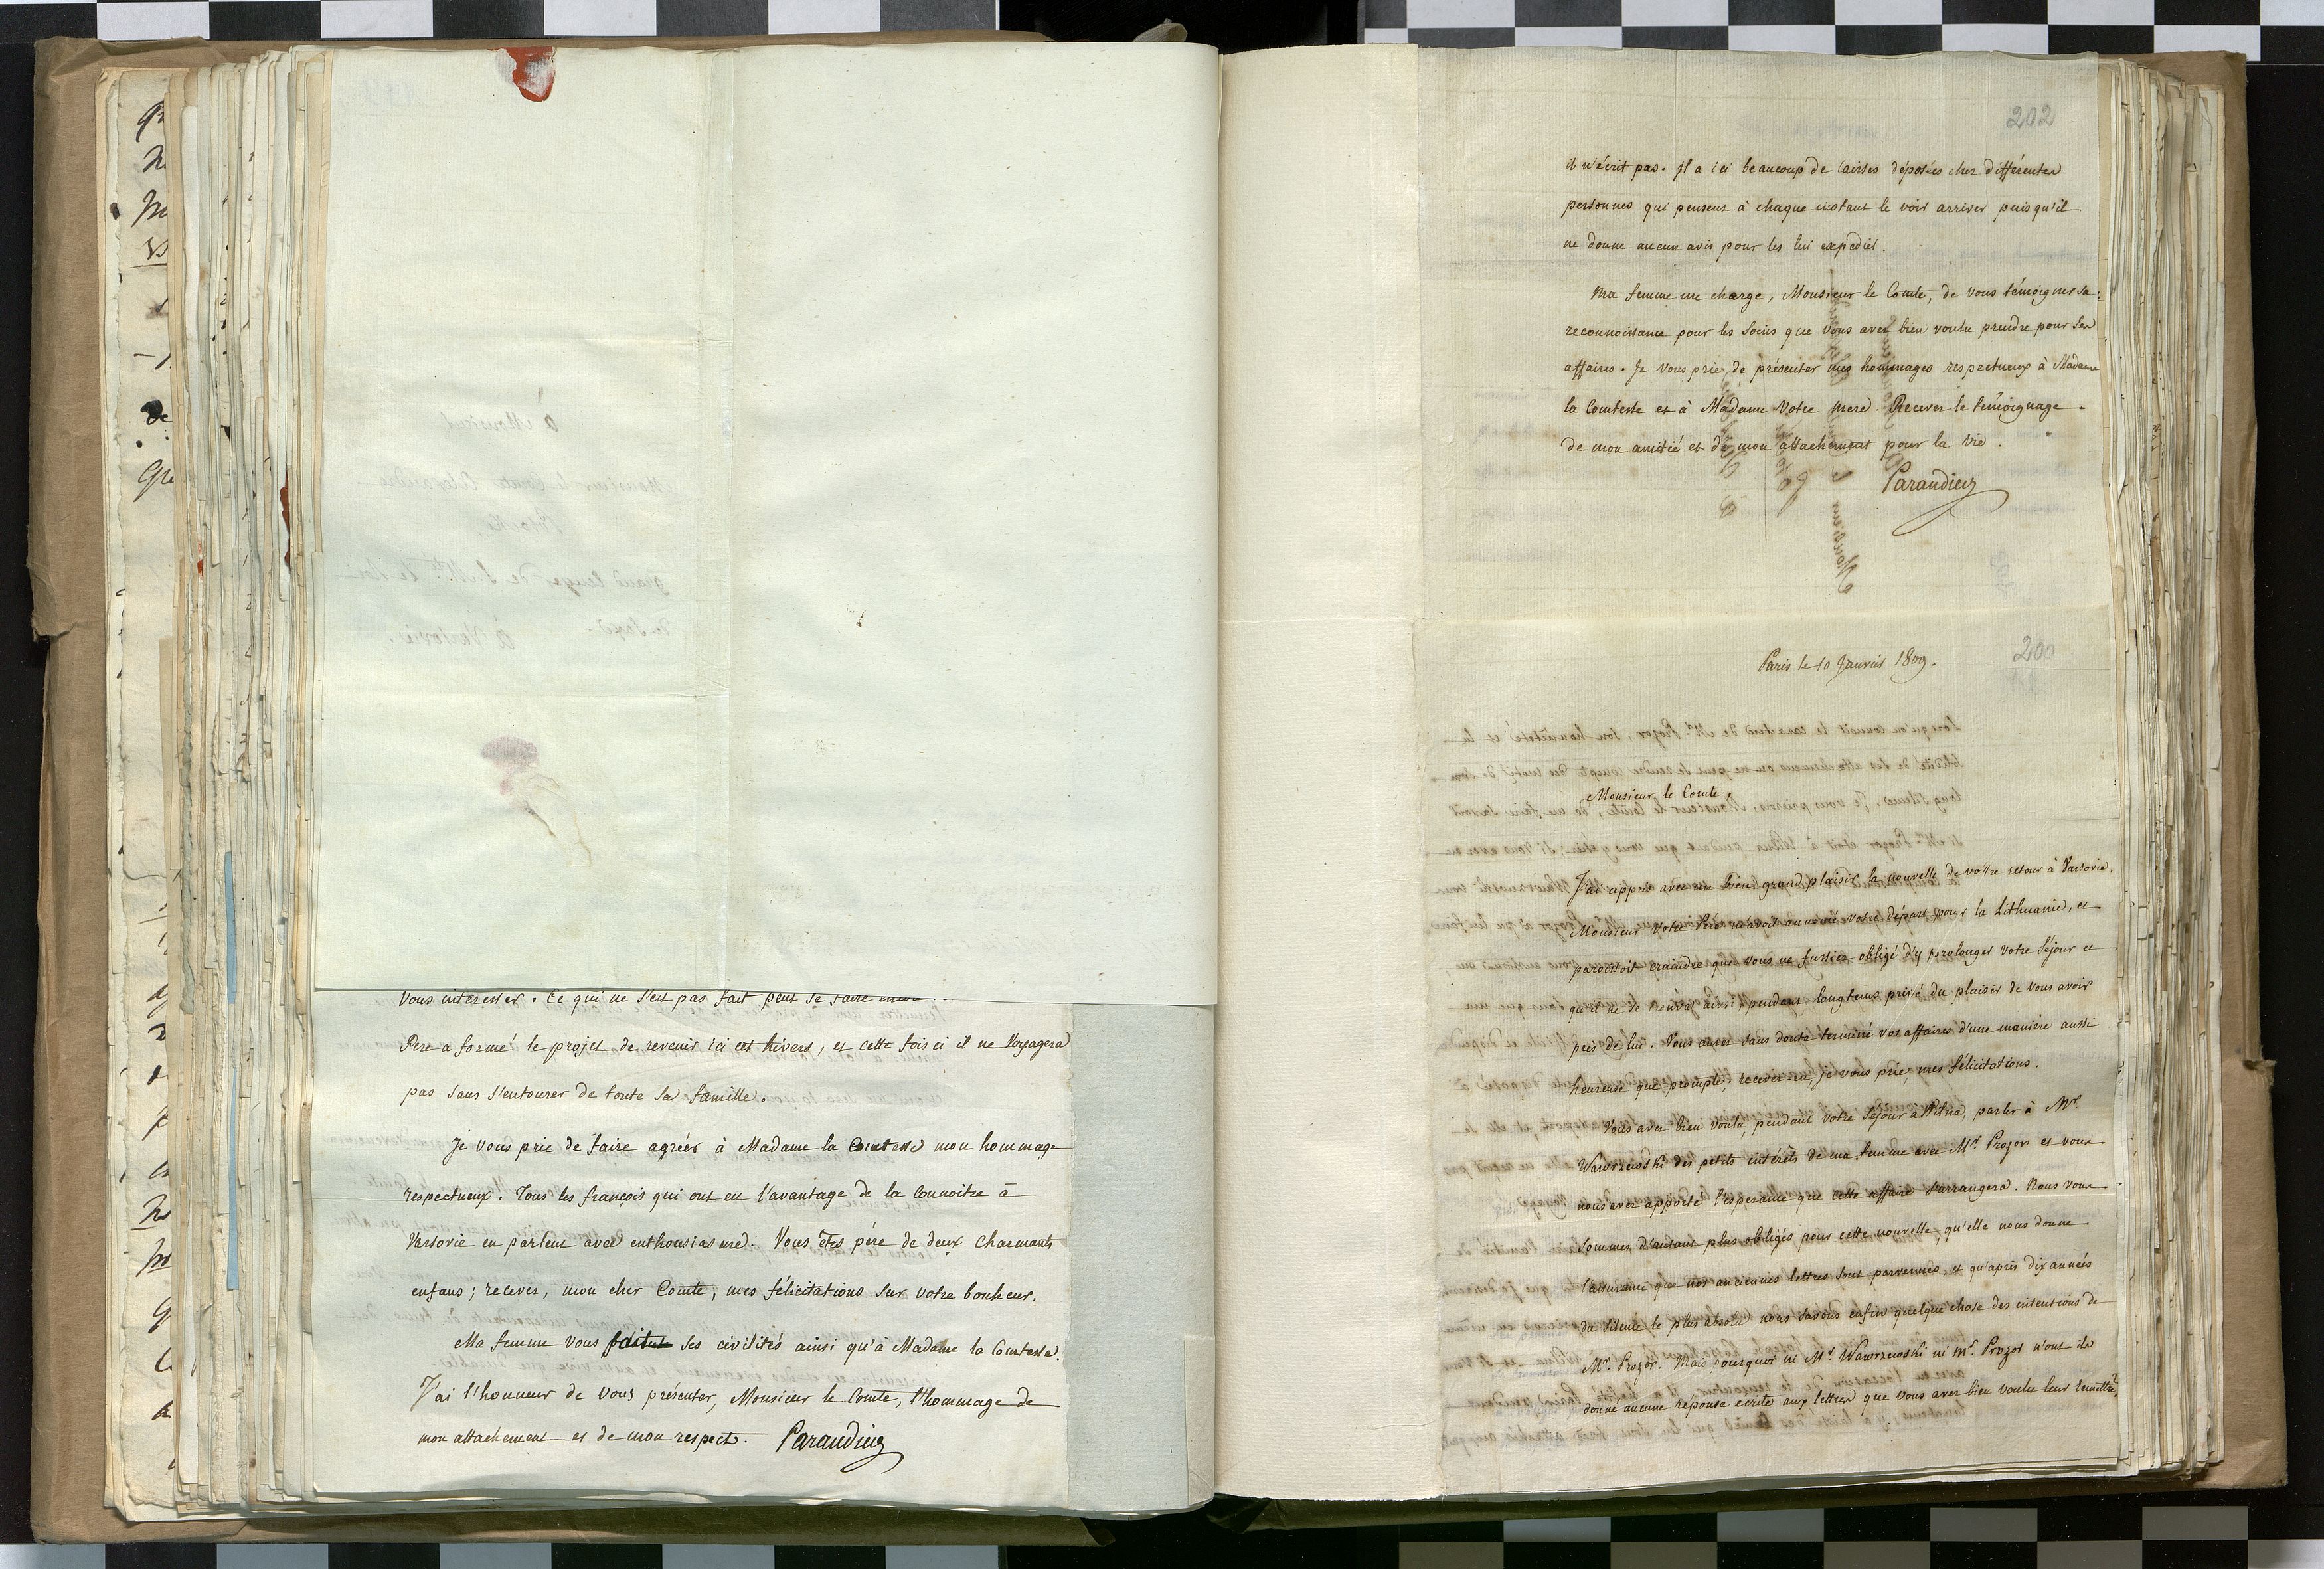 vous interesser. Ce qui ne s'est pas fait peut se faire
Pere a formé le projet de revenir ici cet hiver, et cette fois ci il ne voyagera
pas sans s'entourer de toute sa famille.
Je vous prie de faire agréer à Madame la Comtesse mon hommage
respectueux. Tous les françois qui ont eu l'avantage de la connoitre à
Varsovie en parlent avec enthousiasme. Vous êtes père de deux charmants
enfans; recevez, mon cher Comte, mes félicitations sur votre bonheur.
Ma femme vous fait ses civilités ainsi qu'à Madame la Comtesse.
J'ai l'honneur de vous présenter, Monsieur le Comte, l'hommage de
mon attachement et de mon respect. Parandier
202
il n'écrit pas. il a ici beaucoup de caisses déposées chez différentes
personnes qui pensent à chaque instant le voir arriver puisqu'il
ne donne aucun avis pour les lui expedier.
Ma femme me charge, Monsieur le Comte, de vous témoigner sa
reconnoissance pour les soins que vous avez bien voulu prendre pour ses
affaires. Je vous prie de présenter mes hommages respectueux à Madame
la Comtesse et à Madame votre mere. Recevez le témoignage
de mon amitié et de mon attachement pour la vie.
Parandier
200
Paris le 10 Janvier 1809.
Monsieur le Comte,
J'ai appris avec un bien grand plaisir la nouvelle de votre retour à Varsovie.
Monsieur votre Père m'avoit annoncé votre départ pour la Lithuanie, et
paroissoit craindre que vous ne fussiez obligé d'y prolonger votre séjour et
qu'il ne se trouvât ainsi pendant longtems privé du plaisir de vous avoir
près de lui. Vous aurez sans doute terminé vos affaires d'une manière aussi
heureuse que prompte; recevez-en, je vous prie, mes félicitations.
Vous avez bien voulu, pendant votre séjour à Vilna, parler à Mr.
Wawrzewski des petits intérêts de ma femme avec Mr. Prozor et vous
nous avez apporté l'esperance que cette affaire s'arrangera. Nous vous
sommes d'autant plus obligés pour cette nouvelle, qu'elle nous donne
l'assurance que nos anciennes lettres sont parvenues, et qu'après dix années
du silence le plus absolu nous savons enfin quelque chose des intentions de
Mr. Prozor. Mais pourquoi ni Mr. Wawrzewski ni Mr. Prozor n'ont ils
donné aucune réponse ecrite aux lettres que vous avez bien voulu leur remettre?